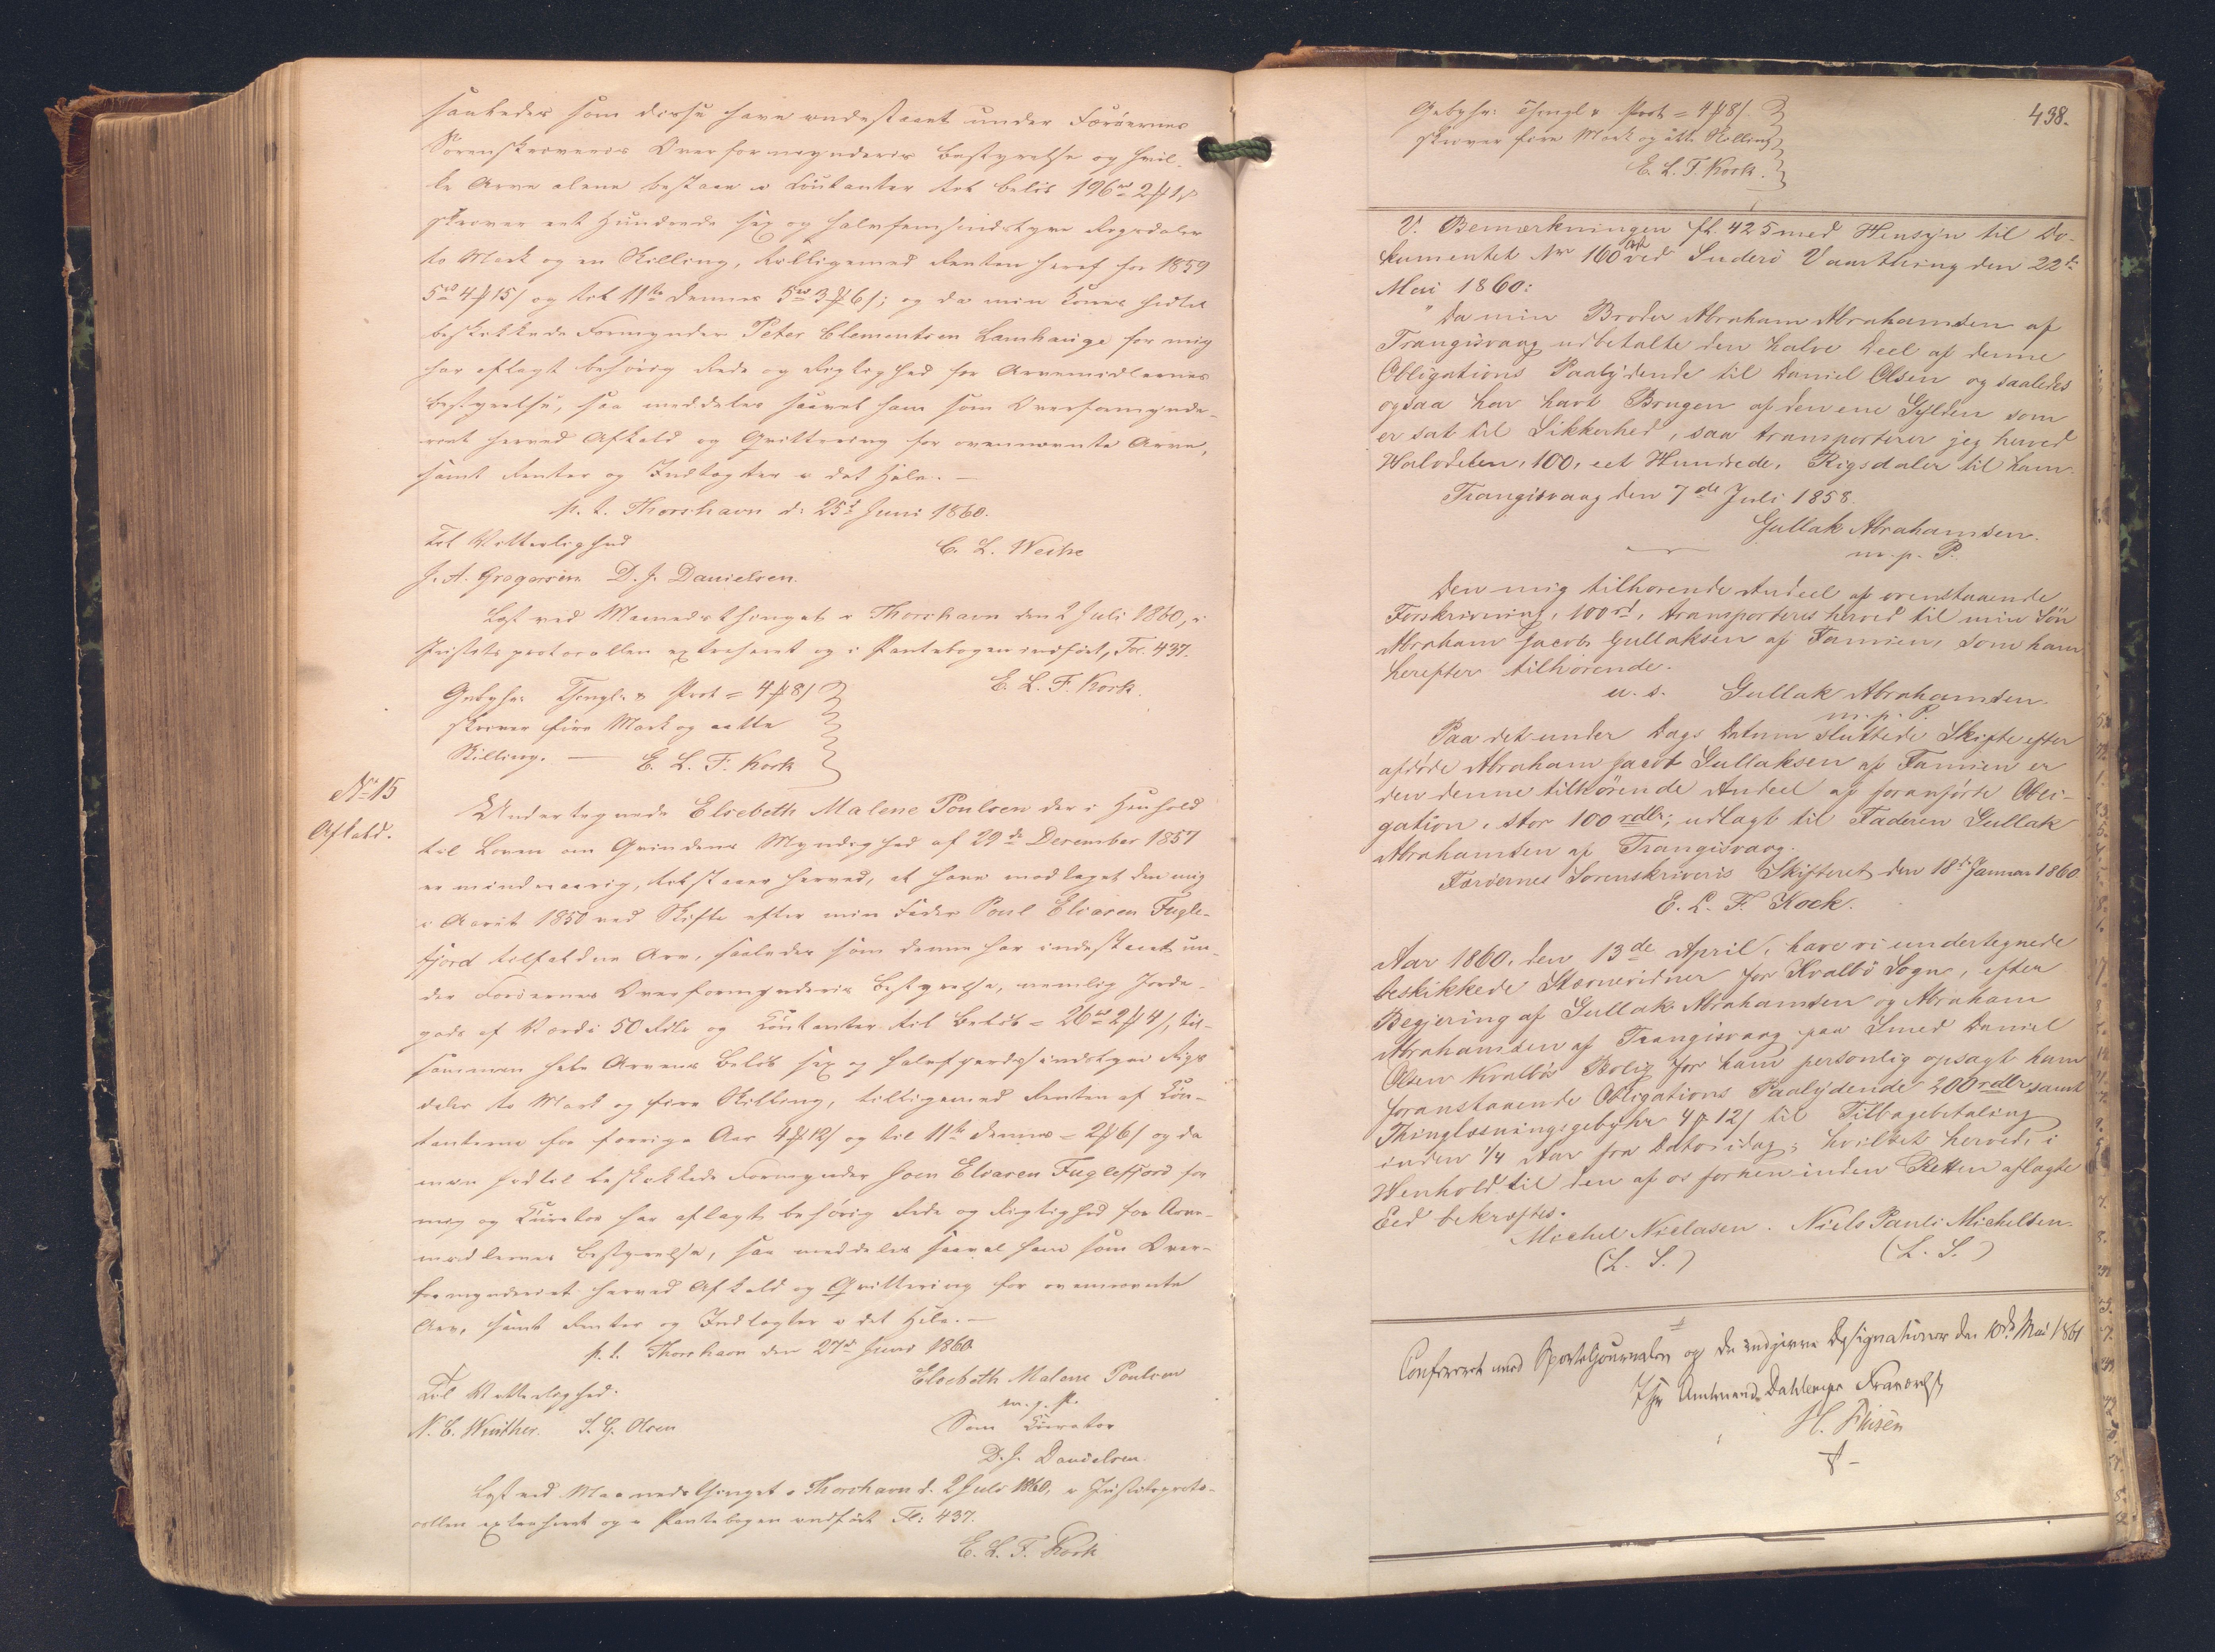 saaledes som disse have indestaaet under Færöernes
Sorenskriveris Overformynderis Bestyrelse og hvil-
ke Arve alene bestaae i Contanter til Beløb 196rd 2# 1s
skriver eet Hundrede sex og halvfemsindstyve Rigsdaler
to Mark og en Skilling, tilligemed Renten heraf for 1859
5rd 4# 15s og til 11te dennes 3# 6s; og da min Kones hidtil
beskikkede Formynder Peter Clementsen Lamhauge for mig
har aflagt behörig Rede og Rigtighed for Arvemidlernes
Bestyrelse, saa meddeles saavel ham som Overformynde-
riet herved Afkald og Qvittering for ovennævnte Arve,
samt Renter og Indtægter i det Hele. —
p. t. Thorshavn d: 25d Juni 1860.
Til Vitterlighed
C. L. Weihe
J. A. Gregersen D. J. Danielsen.
Læst ved Maanedsthinget i Thorshavn den 2 Juli 1860, i
Justitsprotocollen extraheret og i Pantebogen indført, Fol. 437.
E. L. F. Kock.
Gebyhr: Thingl. & Prot = 4# 8s
skriver fire Mark og aatte
Skilling. — E. L. F. Kock
No 15
Afkald.
Undertegnede Elsebeth Malene Poulsen der i Henhold
til Loven om Qvinders Myndighed af 29de December 1857
er mindreaarig, tilstaaer herved, at have modtaget den mig
i Aaret 1850 ved Skifte efter min Fader Poul Eliasen Fugle-
fjord tilfaldne Arv, saaledes som denne har indestaaet un-
der Færöernes Overformynderis Bestyrelse, nemlig Jorde-
gods af Værdi 50 Rdlr og Contanter til Beløb = 26rd 2# 4s, til-
sammen hele Arvens Beløb sex og halvfjerdsindstyve Rigs
daler to Mark og fire Skilling, tilligemed Renten af Con-
tanterne for forrige Aar 4# 12s og til 11te dennes = 2# 6s og da
min hidtil beskikkede Formynder Joen Eliasen Fuglefjord for
mig og Curator har aflagt behörig Rede og Rigtighed for Arve-
midlernes Bestyrelse, saa meddeles saavel ham som Over-
formynderiet herved Afkald og Qvittering for ovennævnte
Arv, samt Renter og Indtægter i det Hele. —
p. t. Thorshavn den 27de Juni 1860
Til Vitterlighed:
Elsebeth Malene Poulsen
m. p. P.
N. C. Winther. S. G. Olsen
Som Curator
D. J. Danielsen.
Læst ved Maanedsthinget i Thorshavn d. 2 Juli 1860, i Justitsproto-
collen extraheret og i Pantebogen indført Fl: 437.
E. L. F. Kock
438.
Gebyhr: Thingl & Prot = 4# 8s.
skriver fire Mark og åtte Skilling
E. L. F. Kock.
V. Bemærkningen fl. 425 med Hensyn til Do-
kumentet Nr 160 ved Suderö Vaarthing den 22de
Mai 1860:
"Da min Broder Abraham Abrahamsen af
Trangisvaag udbetalte den halve Deel af denne
Obligations Paalydende til Daniel Olsen og saaledes
ogsaa har havt Brugen af den ene Gylden som
er sat til Sikkerhed, saa transporterer jeg herved
Halvdelen, 100, eet Hundrede, Rigsdaler til ham.
Trangisvaag den 7de Juli 1858.
Gullak Abrahamsen.
m. p. P.
Den mig tilhørende Andeel af ovenstaaende
Forskrivning, 100rd, transporteres herved til min Sön
Abraham Jacob Gullaksen af Famien, som ham
herefter tilhørende.
u. s. Gullak Abrahamsen.
m. p. P.
Paa det under Dags Datum sluttede Skifte efter
afdöde Abraham Jacob Gullaksen af Famien er
den denne tilhörende Andeel af foranførte Obli-
gation, stor 100 rdlr; udlagt til Faderen Gullak
Abrahamsen af Trangisvaag.
Færöernes Sorenskriveris Skifteret den 18de Januar 1860
E. L. F. Kock.
Aar 1860, den 13de April, have vi undertegnede
beskikkede Stævnevidner for Hvalbö Sogn, efter
Begjering af Gullak Abrahamsen og Abraham
Abrahamsen af Trangisvaag paa Smed Daniel
Olsen Kvalbös Bolig for ham personlig opsagt ham
foranstaaende Obligations Paalydende 200 rdlr samt
Thinglæsningsgebyhr 4# 12s til Tilbagebetaling
inden 1/4 Aar fra Dato idag; hvilket herved, i
Henhold til den af os forhen inden Retten aflagte
Eed bekræftes.
Michel Niclasen. Niels Pauli Michelsen.
(L. S.) (L. S.)
Confereret med Sporteljournalen og de indgivne Designationer den 10de Mai 1861
I Hr Amtmand Dahlerups Fraværelse
H.